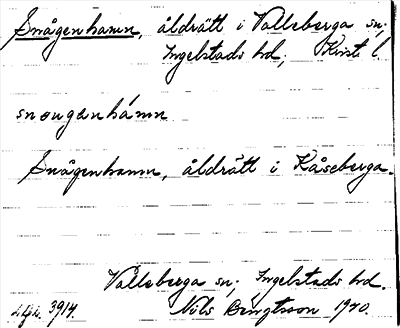 Snågenhamn, åldrätt i Valleberga sn;
Ingelstads hd, Krist. l.
snougenhámn
Snågenhamn, åldrätt i Kåseberga.
Valleberga sn; Ingelstads hd.
3914. Nils Bengtsson 1920.